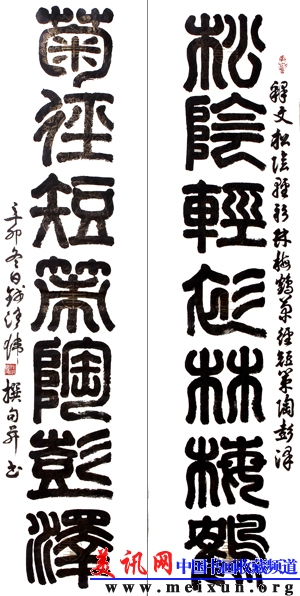 釋文松陰輕衫林梅鶴菊徑短策陶彭澤
松陰輕衫林梅鶴
菊徑短策陶彭澤
辛卯冬日撰句并书
美讯网 中国书画收藏频道
www.meixun.org